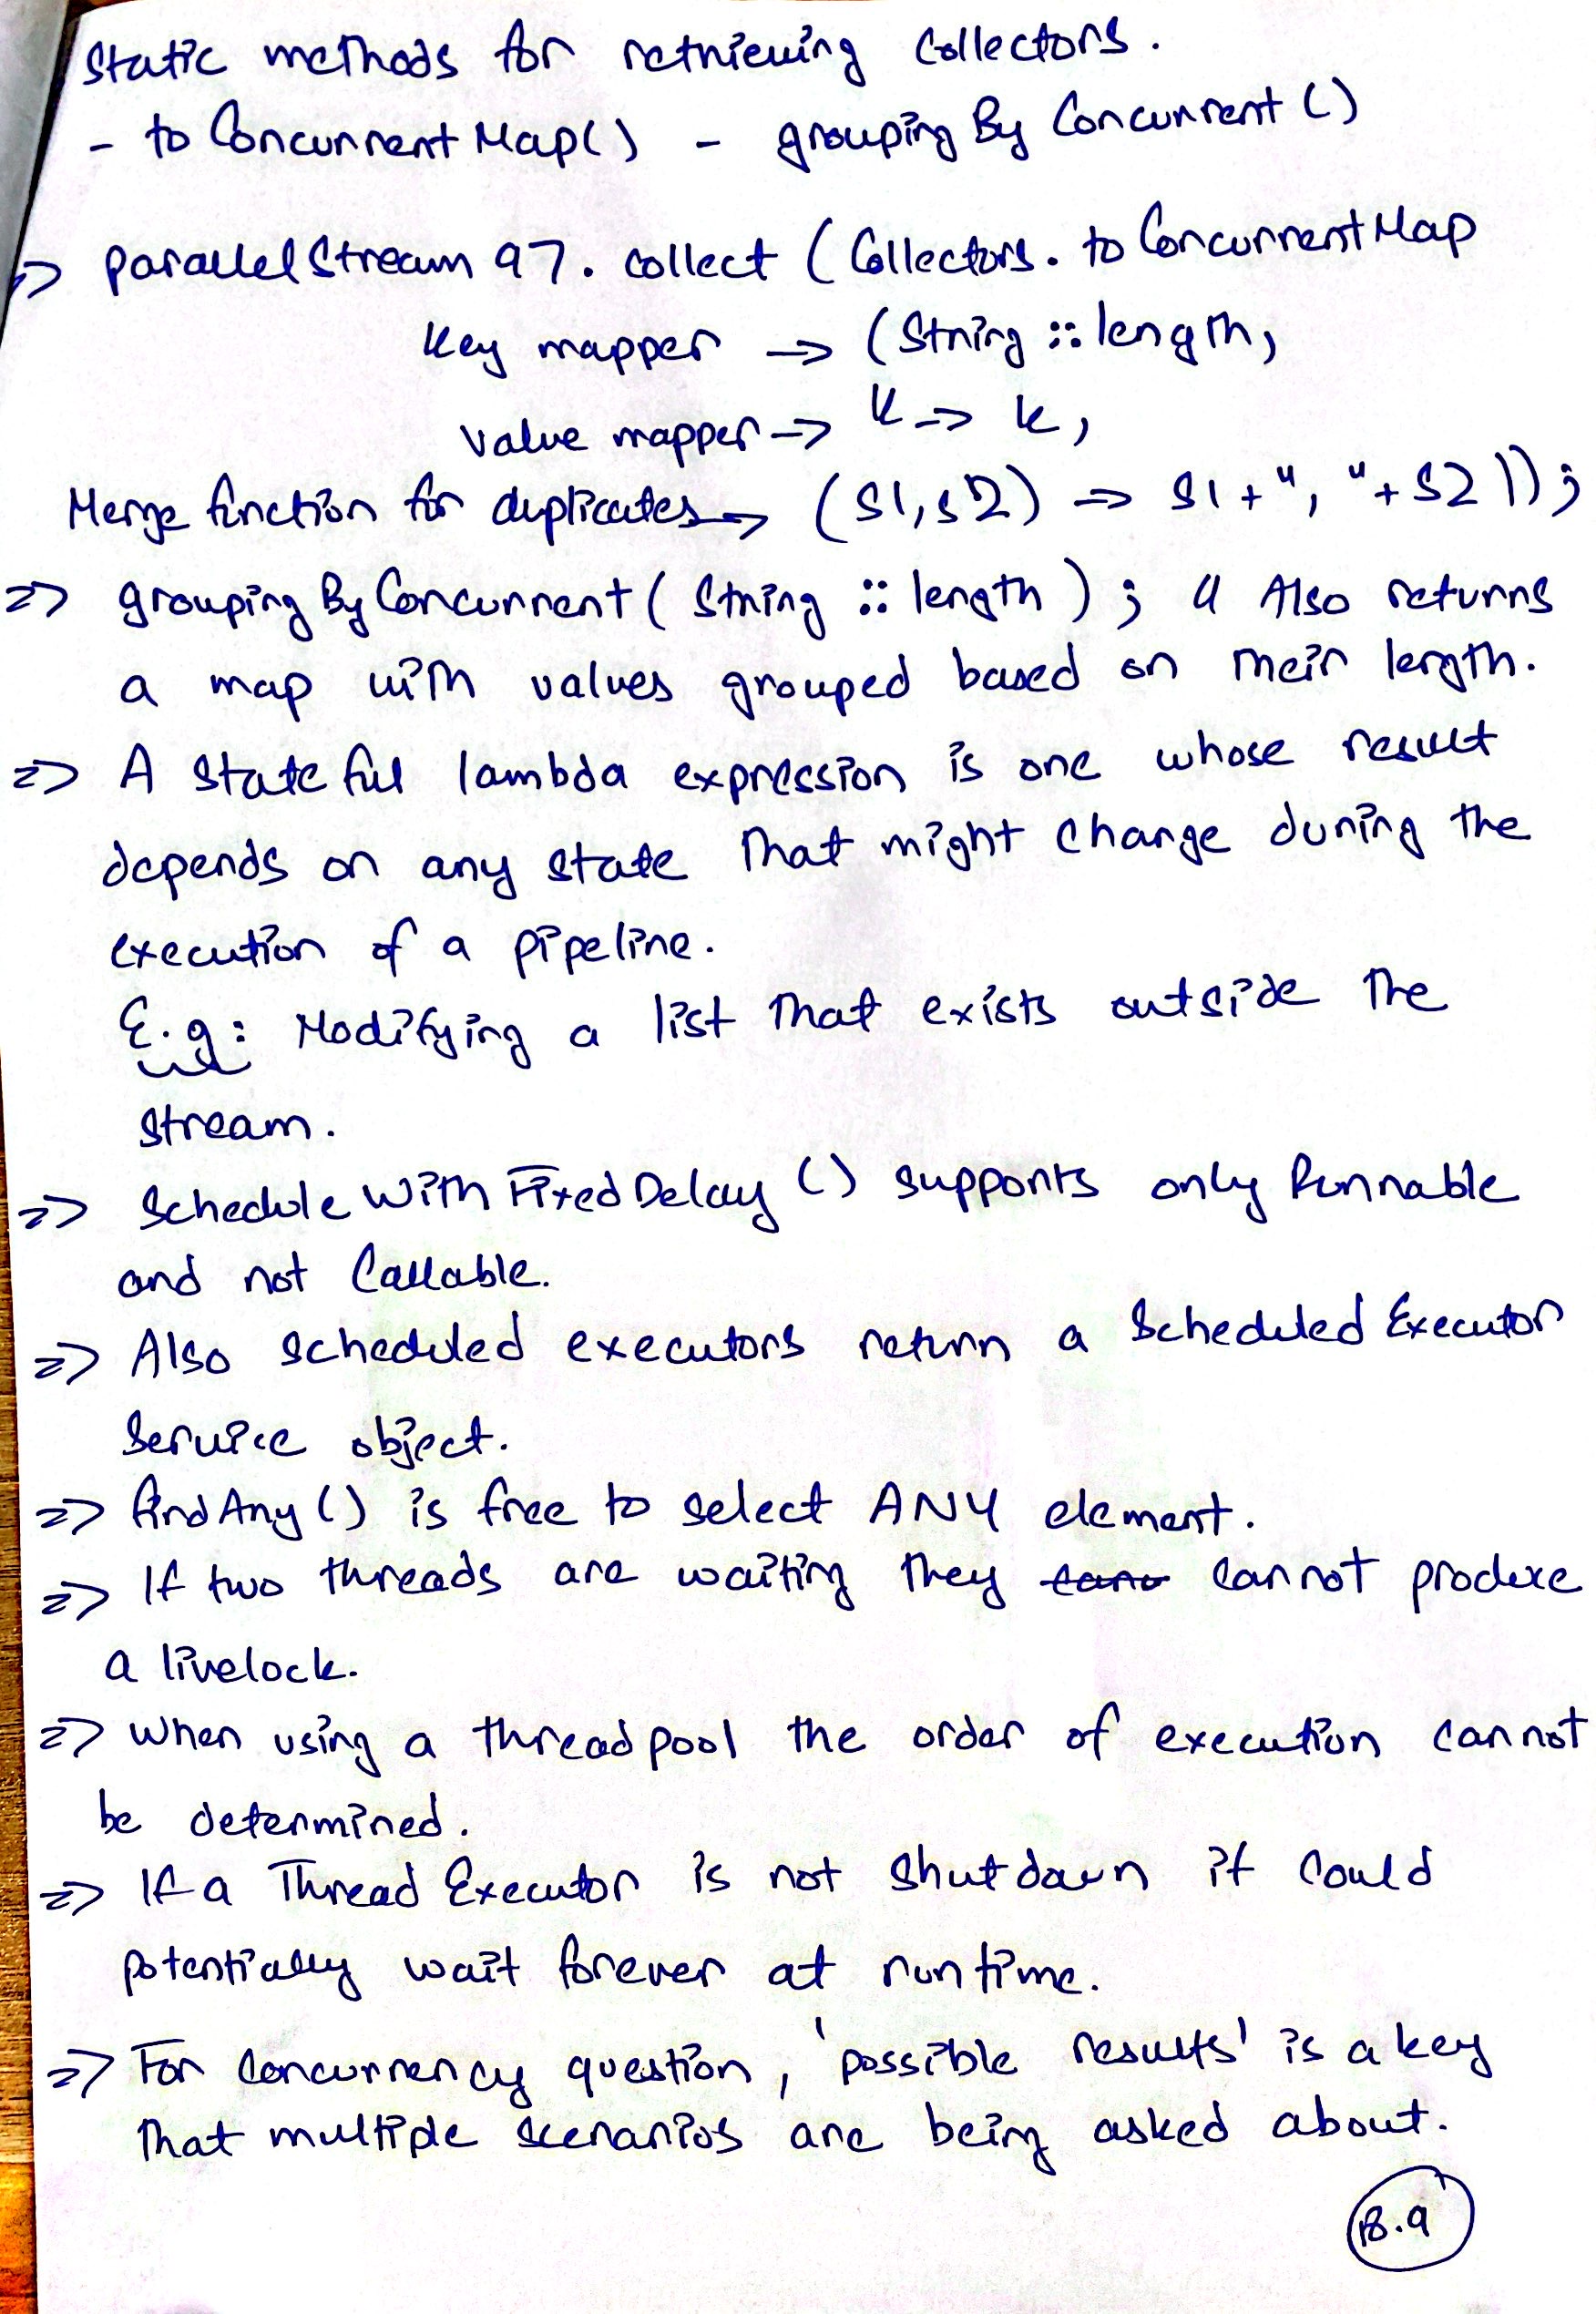 Static methods for retrieving Collectors.
- to Concurrent Map() - grouping By Concurrent ()
=> parallel Stream 97. collect ( Collectors. to Concurrent Map
Key mapper -> (String :: length,
value mapper -> k -> k,
Merge function for duplicates -> (S1, S2) => S1 + ", " + S2 ));
=> grouping By Concurrent ( String :: length ) ; // Also returns
a map with values grouped based on their length.
=> A Stateful lambda expression is one whose result
depends on any state that might change during the
execution of a pipeline.
E.g: Modifying a list that exists outside the
stream.
=> Schedule With Fixed Delay () supports only Runnable
and not Callable.
=> Also scheduled executors return a Scheduled Executor
Service object.
=> find Any () is free to select ANY element.
=> If two threads are waiting they cannot produce
a livelock.
=> When using a thread pool the order of execution cannot
be determined.
=> If a Thread Executor is not Shutdown it could
potentially wait forever at runtime.
=> For Concurrency question, 'possible results' is a key
that multiple scenarios are being asked about.
18.9